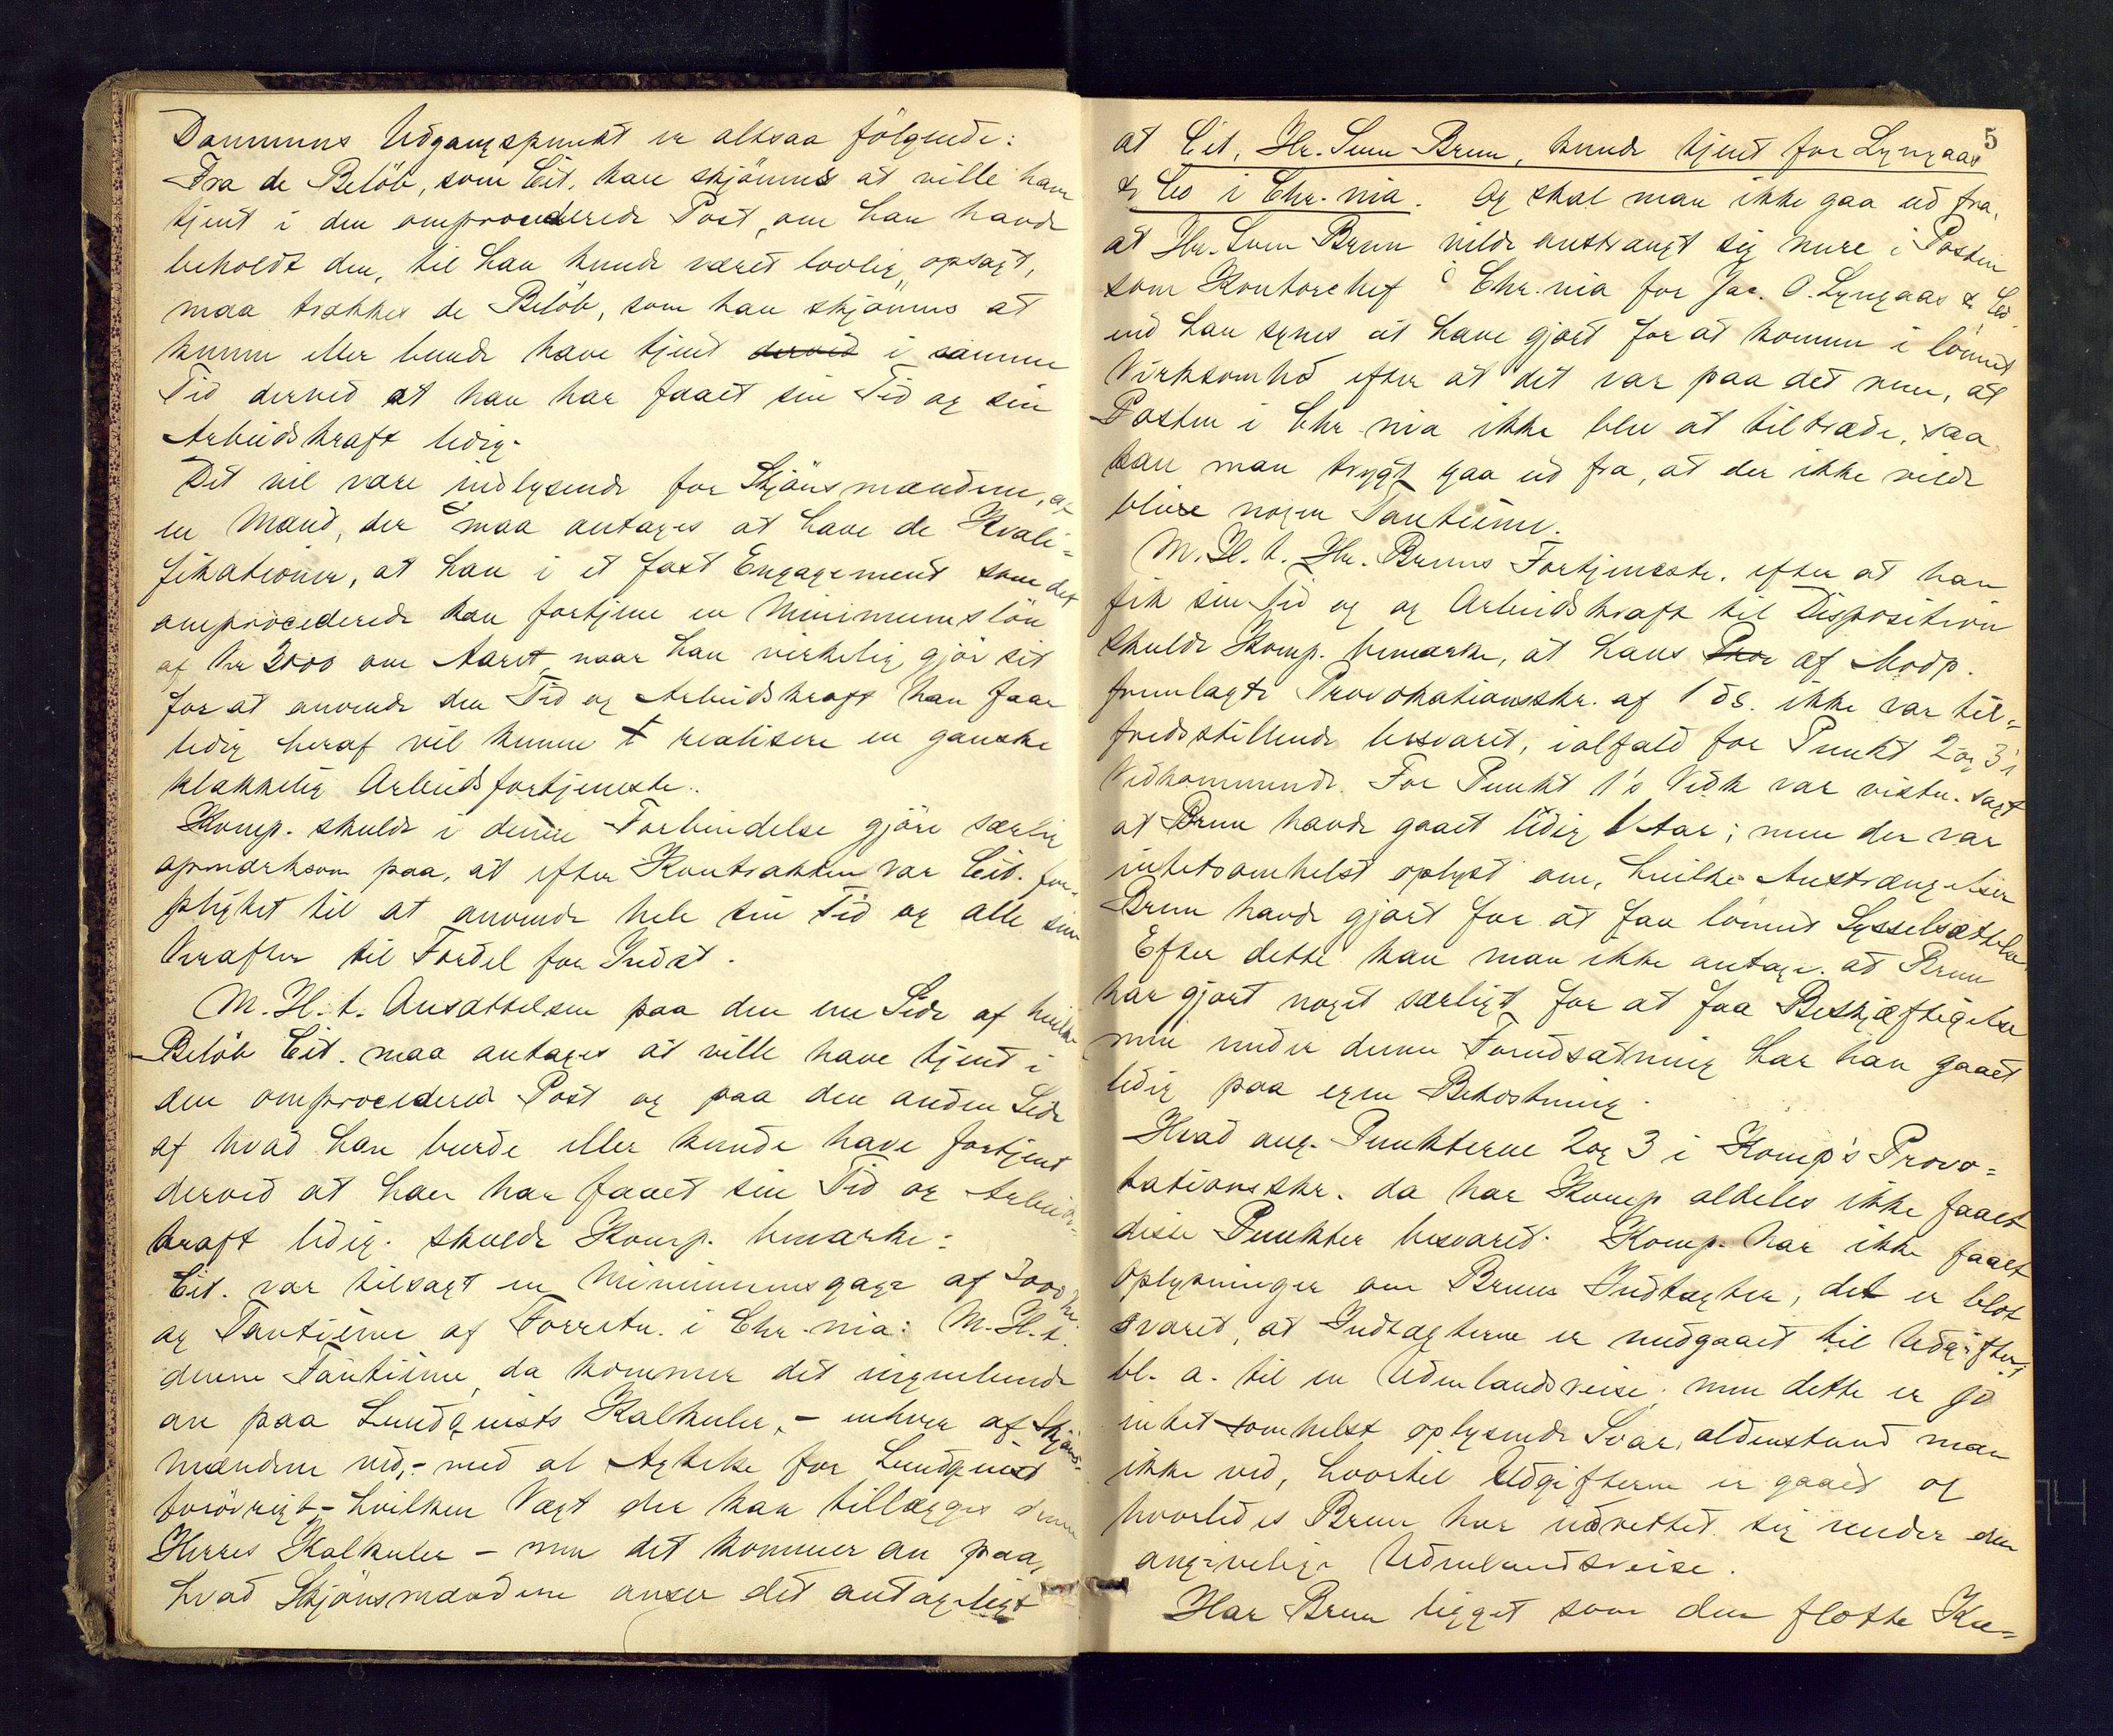 Dommens Udgangspunkt er altsaa følgende:
Fra de Beløb, som Cit. kan skjønnes at ville have
tjent i den omprocederede Post, om han havde
beholdt den, til han kunde været lovlig opsagt,
maa trækkes de Beløb, som han skjønnes at
kunne eller burde have tjent derved i samme
Tid derved at han har faaet sin Tid og sin
Arbeidskraft ledig.
Det vil være indlysende for Skjønsmændene, at
en Mand, der maa antages at have de Kvali-
fikationer, at han i et fast Engagement som det
omprocederede kan fortjene en Minimumsløn
af Kr 3000 om Aaret, naar han virkelig gjør sit
for at anvende den Tid og Arbeidskraft han faar
ledig heraf vil kunne realisere en ganske
klækkelig Arbeidsfortjeneste.
Komp. skulde i denne Forbindelse gjøre særlig
opmærksom paa, at efter Kontrakten var Cit. for-
pligtet til at anvende hele sin Tid og alle sine
Kræfter til Fordel for Indst.
M. H. t. Ansættelsen paa den ene Side af hvilke
Beløb Cit. maa antages at ville have tjent i
den omprocederede Post og paa den anden Side
af hvad han burde eller kunde have fortjent
derved at han har faaet sin Tid og Arbeids-
kraft ledig. skulde Komp. bemærke:
Cit. var tilsagt en Minimumsgage af 3000 Kr.
og Tantieme af Forretn. i Chr.nia: M. H. t.
denne Tantieme, da kommer det ingenlunde
an paa Lundqvists Kalkuler, - enhver af Skjøns-
mændene ved, - med al Agtelse for Lundqvist
forøvrigt - hvilken Vægt der kan tillægges denne
Herres Kalkuler - men det kommer an paa,
hvad Skjønsmændene anser det antageligt
5
at Cit, Hr. Sven Brun, kunde tjent for Lyngaas
& Co i Chr.nia. Og skal man ikke gaa ud fra,
at Hr. Sven Brun vilde anstrængt sig mere i Posten
som Kontorchef i Chr.nia for Jac. O. Lyngaas & Co.
end han synes at have gjort for at komme i lønnet
Virksomhd efter at det var paa det rene, at
Posten i Chr.nia ikke blev at tiltræde, saa
kan man trygt gaa ud fra, at der ikke vilde
blive nogen Tantieme.
M. H. t. Hr. Bruns Fortjeneste. efter at han
fik sin Tid og og Arbeidskraft til Disposition
skulde Komp. bemærke, at hans Prov af Modp.
fremlagte Provokationsskr. af 1 ds. ikke var til-
fredsstillende besvaret, ialfald for Punkt 2 og 3's
Vedkommende. For Punkt 1's Vedk var vistn. sagt
at Brun havde gaaet ledig 1 Aar; men der var
intetsomhelst oplyst om, hvilke Anstrængelser
Brun havde gjort for at faa lønnet Sysselsættelse
Efter dette kan man ikke antage. at Brun
har gjort noget særligt for at faa Beskjæftigelse
men under denne Forudsætning har han gaaet
ledig paa egen Bekostning.
Hvad ang. Punkterne 2 og 3 i Komp's Provo-
kationsskr. da har Komp aldeles ikke faaet
disse Punkter besvaret. Komp. har ikke faaet
Oplysninger om Bruns Indtægter; det er blot
svaret, at Indtægterne er medgaaet til Udgifter,
bl. a. til en Udenlandsreise. men dette er jo
intetsomhelst oplysende Svar, aldenstund man
ikke ved, hvortil Udgifterne er gaaet og
hvorledes Brun har udrettet sig under den
angivelige Udenlandsreise.
Har Brun ligget som den flotte Ka-